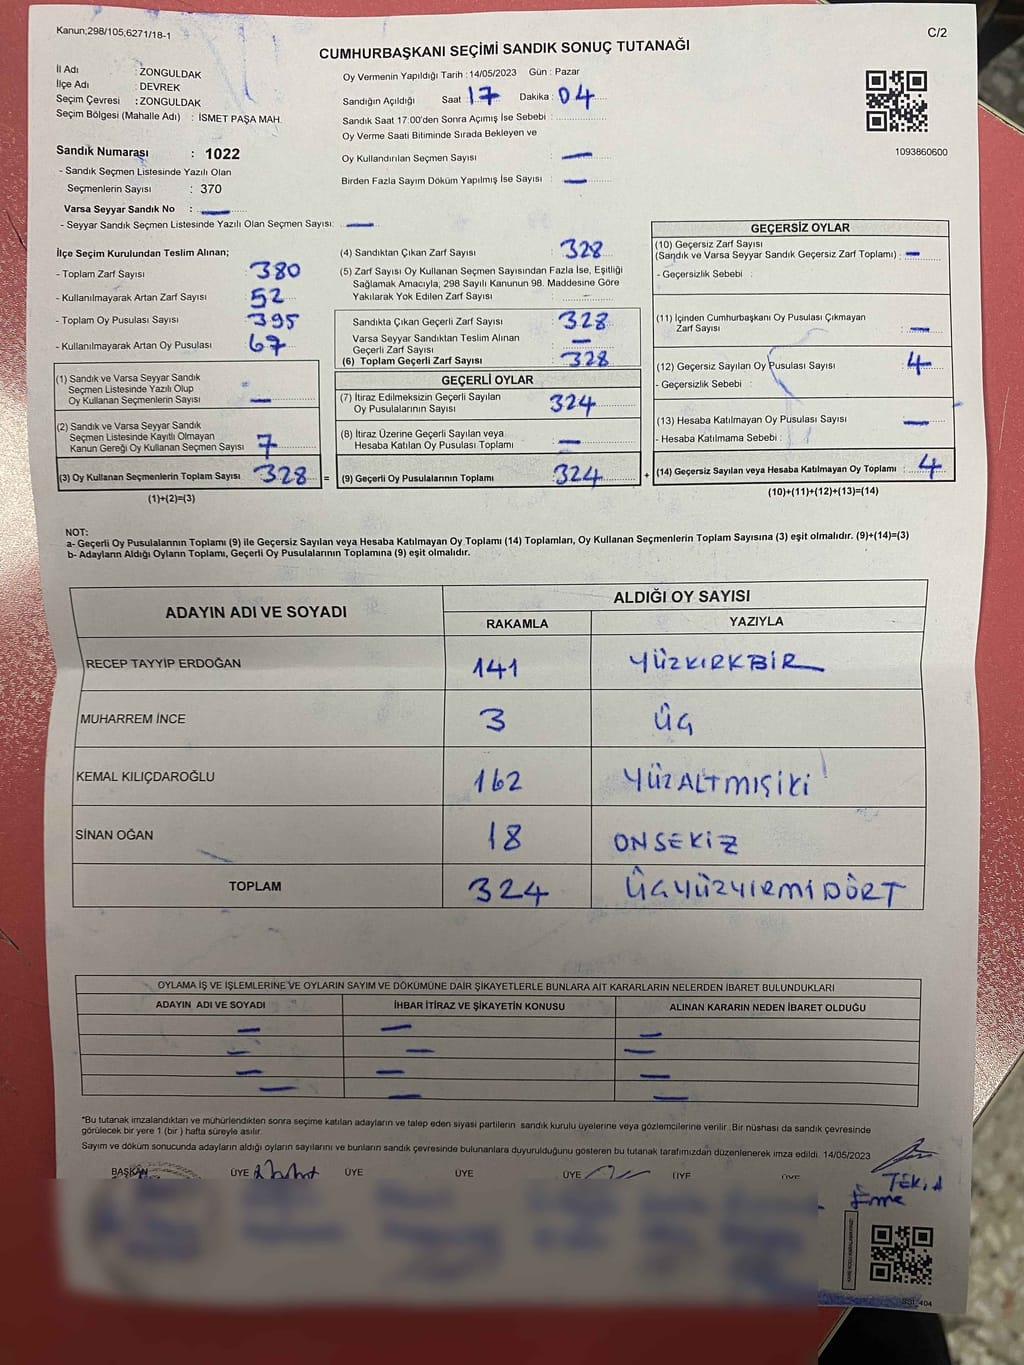 Kanun,298/105,6271/18-1
C/2
CUMHURBAŞKANI SEÇİMİ SANDIK SONUÇ TUTANAĞI
İl Adı : ZONGULDAK
İlçe Adı : DEVREK
Seçim Çevresi : ZONGULDAK
Seçim Bölgesi (Mahalle Adı) : İSMET PAŞA MAH.
Sandık Numarası : 1022
- Sandık Seçmen Listesinde Yazılı Olan
Seçmenlerin Sayısı : 370
Varsa Seyyar Sandık No : —
- Seyyar Sandık Seçmen Listesinde Yazılı Olan Seçmen Sayısı: —
Oy Vermenin Yapıldığı Tarih : 14/05/2023 Gün : Pazar
Sandığın Açıldığı Saat : 17 Dakika : 04
Sandık Saat 17:00'den Sonra Açımış İse Sebebi :
Oy Verme Saati Bitiminde Sırada Bekleyen ve
Oy Kullandırılan Seçmen Sayısı : —
Birden Fazla Sayım Döküm Yapılmış İse Sayısı : —
1093860600
İlçe Seçim Kurulundan Teslim Alınan;
- Toplam Zarf Sayısı : 380
- Kullanılmayarak Artan Zarf Sayısı : 52
- Toplam Oy Pusulası Sayısı : 395
- Kullanılmayarak Artan Oy Pusulası : 67
(1) Sandık ve Varsa Seyyar Sandık
Seçmen Listesinde Yazılı Olup
Oy Kullanan Seçmenlerin Sayısı : —
(2) Sandık ve Varsa Seyyar Sandık
Seçmen Listesinde Kayıtlı Olmayan
Kanun Gereği Oy Kullanan Seçmen Sayısı : 7
(3) Oy Kullanan Seçmenlerin Toplam Sayısı : 328
(1)+(2)=(3)
(4) Sandıktan Çıkan Zarf Sayısı : 328
(5) Zarf Sayısı Oy Kullanan Seçmen Sayısından Fazla İse, Eşitliği
Sağlamak Amacıyla, 298 Sayılı Kanunun 98. Maddesine Göre
Yakılarak Yok Edilen Zarf Sayısı : —
Sandıkta Çıkan Geçerli Zarf Sayısı : 328
Varsa Seyyar Sandıktan Teslim Alınan
Geçerli Zarf Sayısı : —
(6) Toplam Geçerli Zarf Sayısı : 328
GEÇERLİ OYLAR
(7) İtiraz Edilmeksizin Geçerli Sayılan
Oy Pusulalarının Sayısı : 324
(8) İtiraz Üzerine Geçerli Sayılan veya
Hesaba Katılan Oy Pusulası Toplamı : —
= (9) Geçerli Oy Pusulalarının Toplamı : 324
GEÇERSİZ OYLAR
(10) Geçersiz Zarf Sayısı
(Sandık ve Varsa Seyyar Sandık Geçersiz Zarf Toplamı) : —
- Geçersizlik Sebebi :
(11) İçinden Cumhurbaşkanı Oy Pusulası Çıkmayan
Zarf Sayısı : —
(12) Geçersiz Sayılan Oy Pusulası Sayısı : 4
- Geçersizlik Sebebi :
(13) Hesaba Katılmayan Oy Pusulası Sayısı : —
- Hesaba Katılmama Sebebi :
+ (14) Geçersiz Sayılan veya Hesaba Katılmayan Oy Toplamı : 4
(10)+(11)+(12)+(13)=(14)
NOT:
a- Geçerli Oy Pusulalarının Toplamı (9) ile Geçersiz Sayılan veya Hesaba Katılmayan Oy Toplamı (14) Toplamları, Oy Kullanan Seçmenlerin Toplam Sayısına (3) eşit olmalıdır. (9)+(14)=(3)
b- Adayların Aldığı Oyların Toplamı, Geçerli Oy Pusulalarının Toplamına (9) eşit olmalıdır.
ADAYIN ADI VE SOYADI
ALDIĞI OY SAYISI
RAKAMLA YAZIYLA
RECEP TAYYİP ERDOĞAN 141 YÜZKIRKBİR
MUHARREM İNCE 3 ÜÇ
KEMAL KILIÇDAROĞLU 162 YÜZALTMIŞİKİ
SİNAN OĞAN 18 ONSEKİZ
TOPLAM 324 ÜÇYÜZYİRMİDÖRT
OYLAMA İŞ VE İŞLEMLERİNE VE OYLARIN SAYIM VE DÖKÜMÜNE DAİR ŞİKAYETLERLE BUNLARA AİT KARARLARIN NELERDEN İBARET BULUNDUKLARI
ADAYIN ADI VE SOYADI İHBAR İTİRAZ VE ŞİKAYETİN KONUSU ALINAN KARARIN NEDEN İBARET OLDUĞU
— — —
— — —
— — —
— — —
*Bu tutanak imzalandıktan ve mühürlendikten sonra seçime katılan adayların ve talep eden siyasi partilerin sandık kurulu üyelerine veya gözlemcilerine verilir. Bir nüshası da sandık çevresinde
görülecek bir yere 1 (bir ) hafta süreyle asılır.
Sayım ve döküm sonucunda adayların aldığı oyların sayılarını ve bunların sandık çevresinde bulunanlara duyurulduğunu gösteren bu tutanak tarafımızdan düzenlenerek imza edildi. 14/05/2023
BAŞKAN ÜYE ÜYE ÜYE ÜYE ÜYE ÜYE